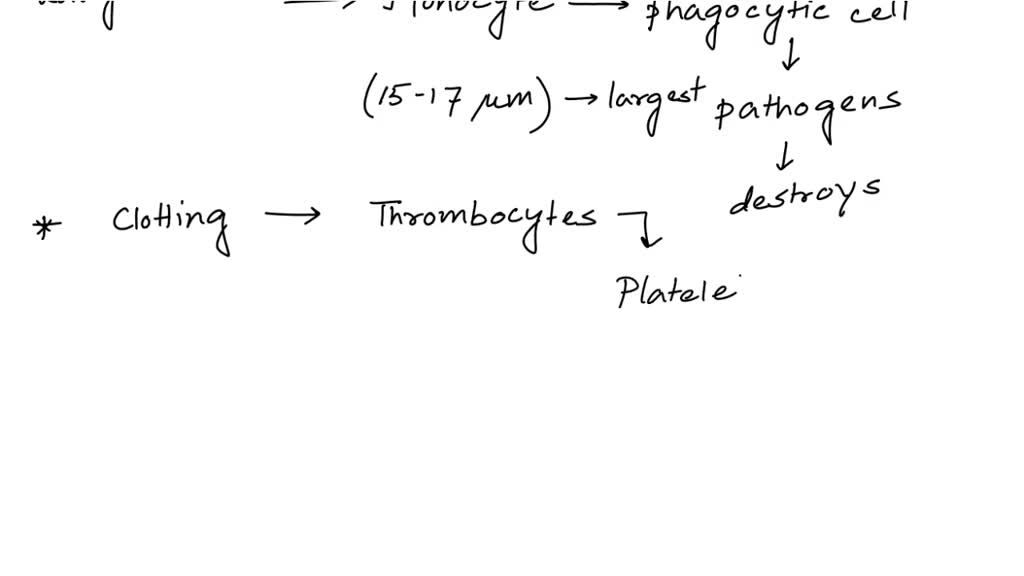 → Monocyte → phagocytic cell
↓
(15-17 μm) → largest pathogens
↓
destroys
* Clotting → Thrombocytes
Platele